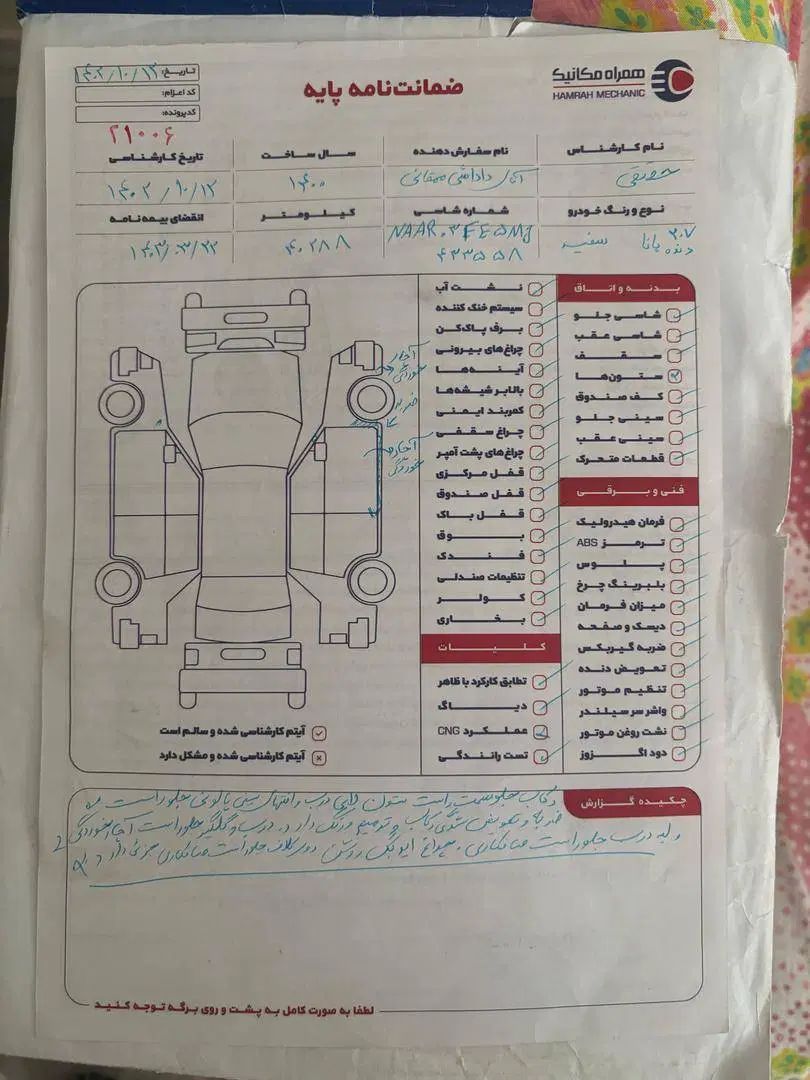 همراه مکانیک
HAMRAH MECHANIC
ضمانت‌نامه پایه
تاریخ: ۱۴۰۲/۱۰/۱۳
کد اعزام:
کدپرونده:
۲۱۰۰۶
نام کارشناس
نام سفارش دهنده
سال ساخت
تاریخ کارشناسی
آقای
۱۴۰۰
۱۴۰۲/۱۰/۱۳
نوع و رنگ خودرو
شماره شاسی
کیلومتر
انقضای بیمه نامه
۲۰۷
دنده پانا سفید
NAAR۰۳FE۵MJ
۴۳۳۵۵۸
۴۰۲۸۸
۱۴۰۳/۰۳/۲۳
بدنه و اتاق
شاسی جلو
شاسی عقب
سقف
ستون‌ها
کف صندوق
سینی جلو
سینی عقب
قطعات متحرک
فنی و برقی
فرمان هیدرولیک
ترمز ABS
پلوس
بلبرینگ چرخ
میزان فرمان
دیسک و صفحه
ضربه گیربکس
تعویض دنده
تنظیم موتور
واشر سر سیلندر
نشت روغن موتور
دود اگزوز
نشت آب
سیستم خنک کننده
برف پاک‌کن
چراغ‌های بیرونی
آینه‌ها
بالابر شیشه‌ها
کمربند ایمنی
چراغ سقفی
چراغ‌های پشت آمپر
قفل مرکزی
قفل صندوق
قفل باک
بوق
فندک
تنظیمات صندلی
کولر
بخاری
کلیات
تطابق کارکرد با ظاهر
دیاگ
عملکرد CNG
تست رانندگی
آچار
خوردگی
ضربه
آچار
خوردگی
آیتم کارشناسی شده و سالم است
آیتم کارشناسی شده و مشکل دارد
چکیده گزارش
رکاب جلو سمت راست ستون درب و انتهای سینی پالونی جلو راست
ضربه و تعویض رکاب ترمیم و رنگ دارد، درب و گلگیر جلو راست آچار خوردگی
و لبه درب جلو راست صافکاری، چراغ ایربگ روشن، جلو راست صافکاری جزئی دارد
لطفا به صورت کامل به پشت و روی برگه توجه کنید